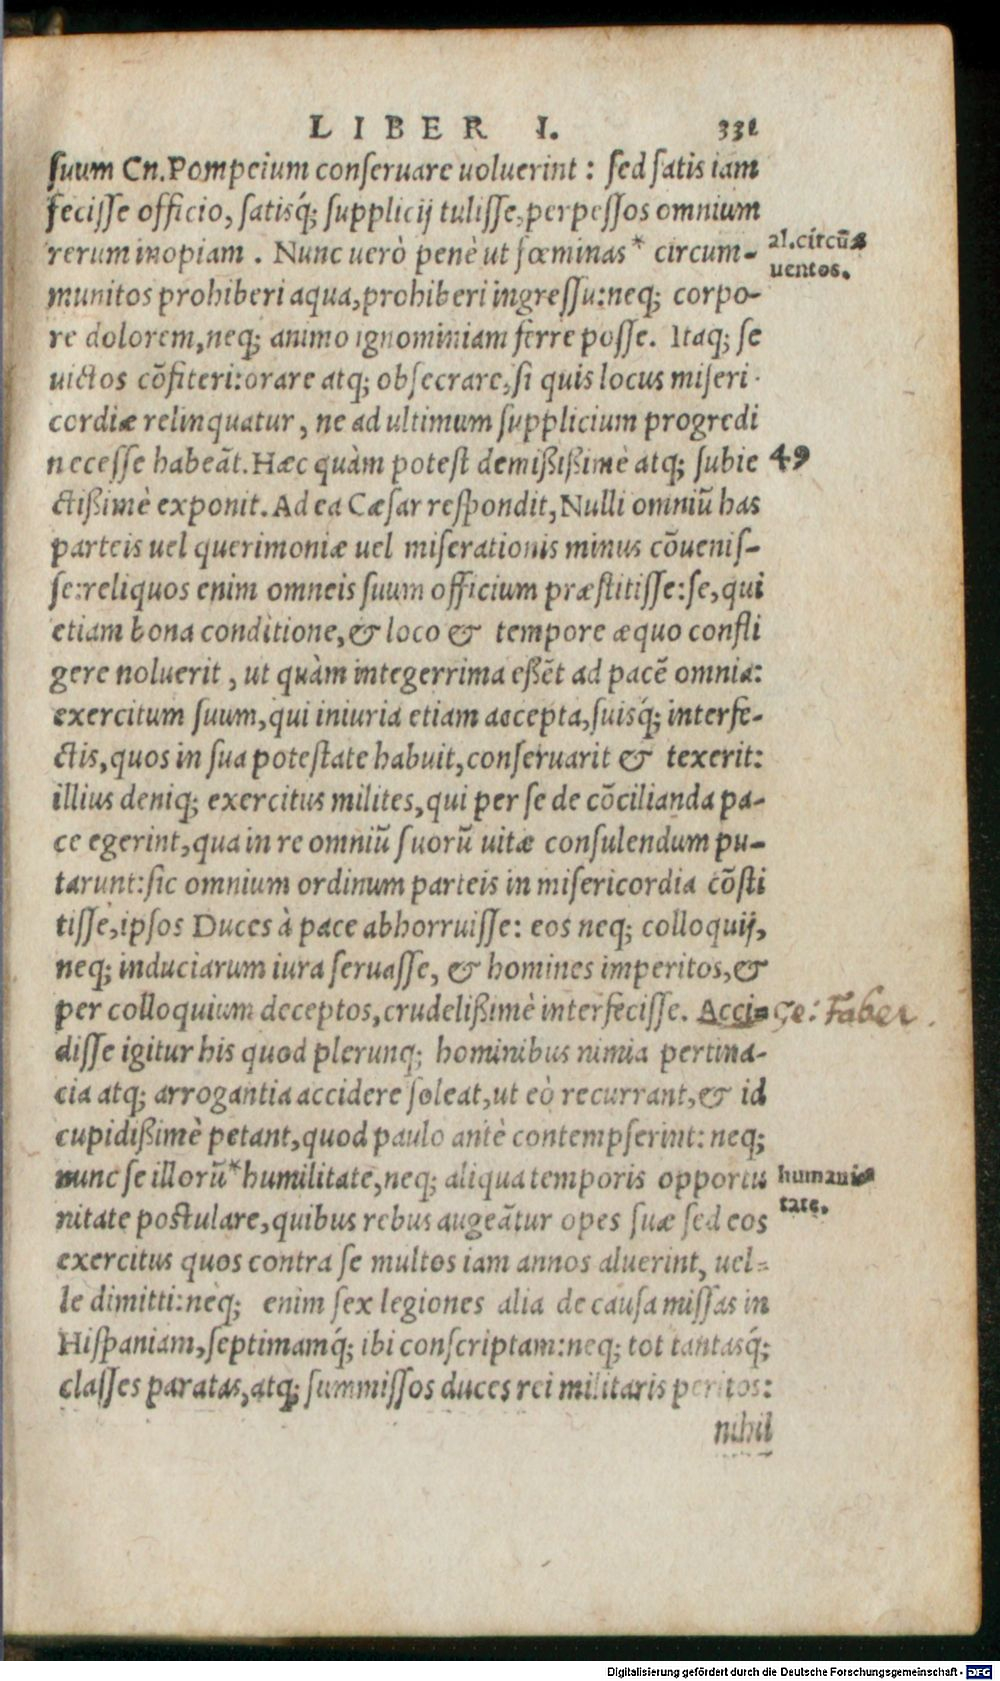 LIBER I. 331
suum Cn.Pompeium conseruare uoluerint : sed satis iam
fecisse officio, satisq́; supplicij tulisse, perpessos omnium
rerum inopiam . Nunc uerò penè ut fœminas* circum-
al.circũ
uentos.
munitos prohiberi aqua, prohiberi ingressu:neq; corpo-
re dolorem, neq; animo ignominiam ferre posse. Itaq; se
uictos cõfiteri:orare atq; obsecrare, si quis locus miseri-
cordiæ relinquatur, ne ad ultimum supplicium progredi
necesse habeãt. Hæc quàm potest demißißimè atq; subie 49
ctißimè exponit. Ad ea Cæsar respondit, Nulli omniũ has
parteis uel querimoniæ uel miserationis minus cõuenis-
se:reliquos enim omneis suum officium præstitisse:se, qui
etiam bona conditione, & loco & tempore æquo confli
gere noluerit, ut quàm integerrima eßẽt ad pacẽ omnia:
exercitum suum, qui iniuria etiam accepta, suisq́; interfe-
ctis, quos in sua potestate habuit, conseruarit & texerit:
illius deniq; exercitus milites, qui per se de cõcilianda pa-
ce egerint, qua in re omniũ suorũ uitæ consulendum pu-
tarunt:sic omnium ordinum parteis in misericordia cõsti
tisse, ipsos Duces à pace abhorruisse: eos neq; colloquij,
neq; induciarum iura seruasse, & homines imperitos, &
per colloquium deceptos, crudelißimè interfecisse. Acci- ge: Faber.
disse igitur his quod plerunq; hominibus nimia pertina-
cia atq; arrogantia accidere soleat, ut eò recurrant, & id
cupidißimè petant, quod paulo antè contempserint: neq;
nunc se illorũ* humilitate, neq; aliqua temporis opportu
humani-
tate.
nitate postulare, quibus rebus augeãtur opes suæ sed eos
exercitus quos contra se multos iam annos aluerint, uel-
le dimitti:neq; enim sex legiones alia de causa missas in
Hispaniam, septimamq́; ibi conscriptam:neq; tot tantasq́;
classes paratas, atq; summissos duces rei militaris peritos:
nihil
Digitalisierung gefördert durch die Deutsche Forschungsgemeinschaft - DFG